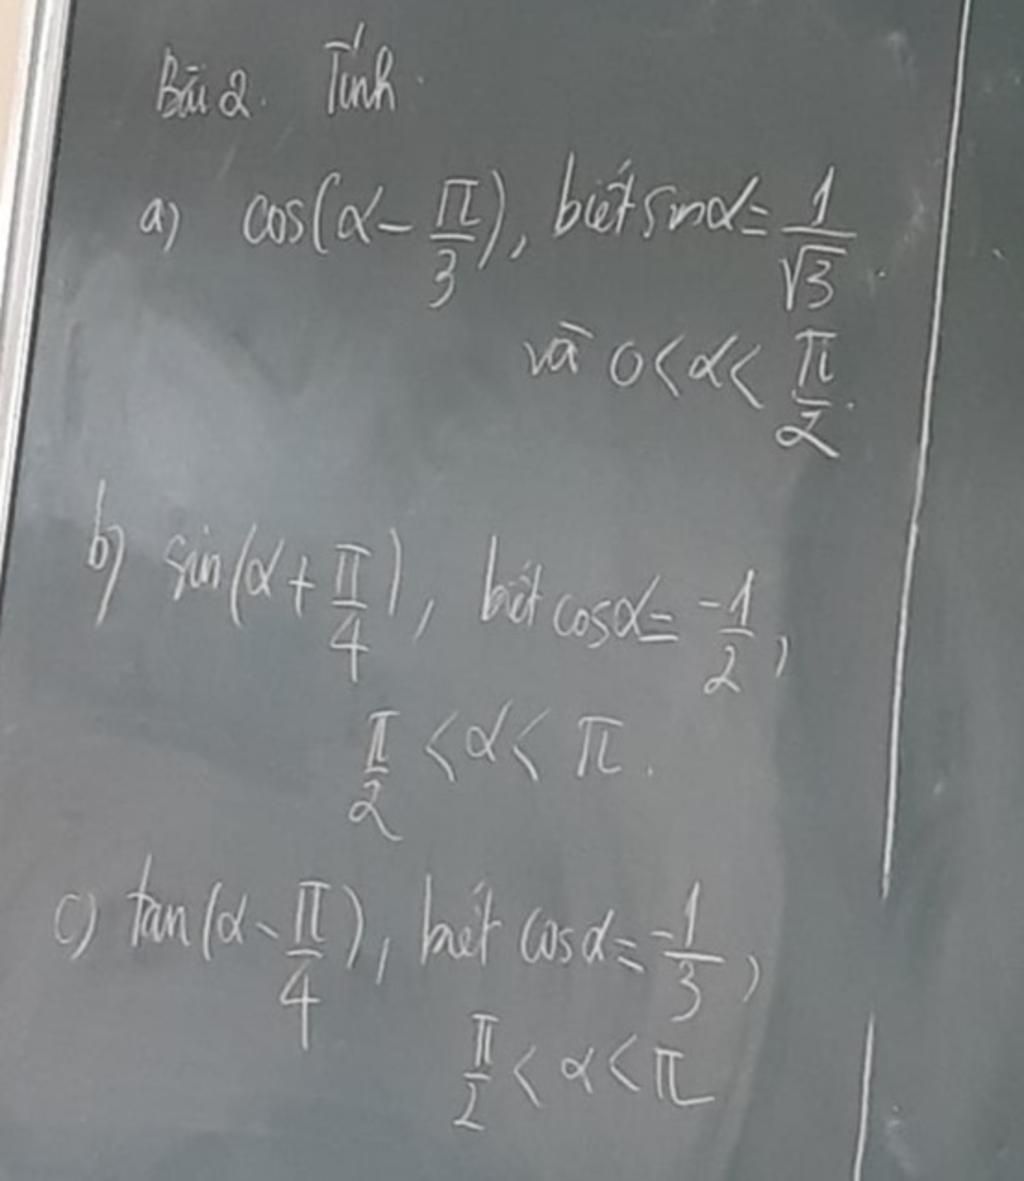 Bài 2. Tính
a) cos(α - π/3), biết sinα = 1/√3
và 0 < α < π/2.
b) sin(α + π/4), biết cosα = -1/2,
π/2 < α < π.
c) tan(α - π/4), biết cosα = -1/3,
π/2 < α < π